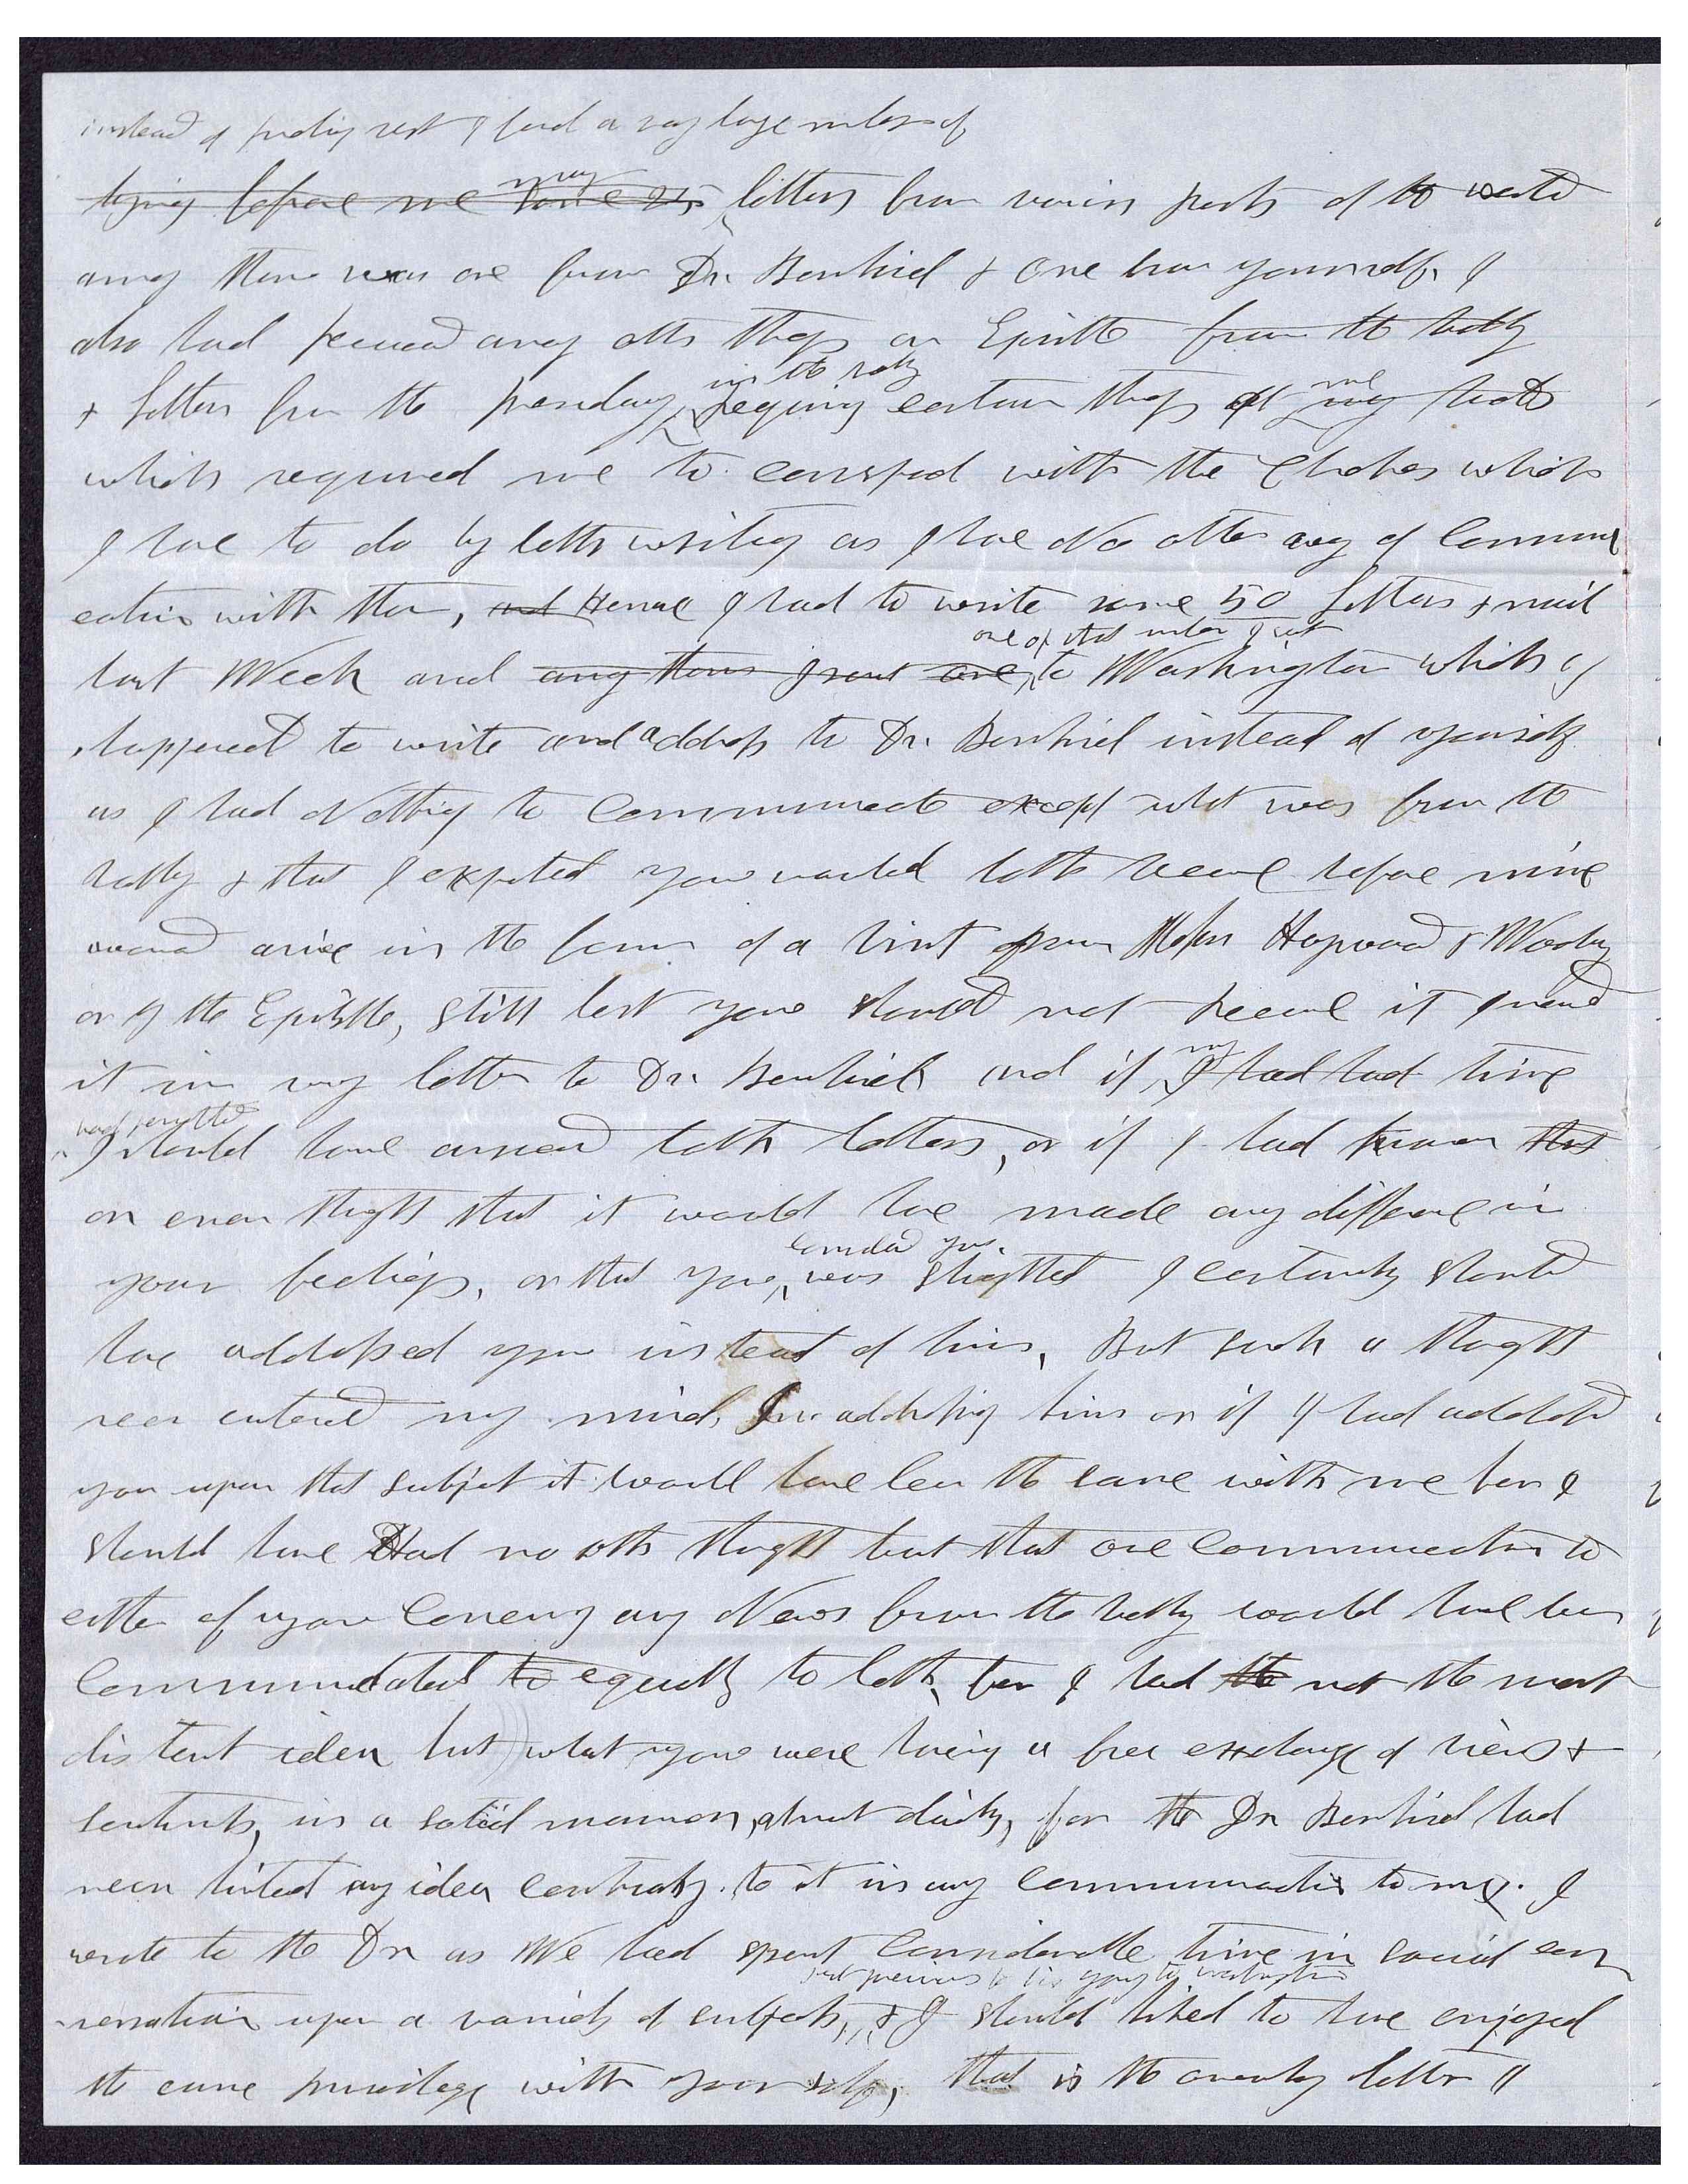 instead of finding rest I found a very large number of
lying before me some 25 many letters from various parts of the world
among them was one from Dr. Bernhisel & One from yourself, I
also had received among other things an Epistle from the valley
& letters from the presidency, in the valley requiring certain things at my me hands
which required me to correspond with the Churches which
I have to do by letter writing as I have No other way of Commun
cation with them, and Hence I had to write some 50 letters & mail
last Week and among them I sent one, one of that number I sent to Washington which I
happened to write and address to Dr. Bernhisel instead of yourself
as I had Nothing to Communicate except what was from the
valley & that I expected you would both receive before mine
would arive in the form of a visit from Messrs Haywood & Woolley
or of the Epistle, still lest you should not receive it I named
it in my letter to Dr. Bernhisel and if my I had had time
had permitted I should have answered both letters, or if I had known that
or even thought that it would have made any difference in
your feelings, or that you, considered you was slighted I certainly should
have addressed you instead of him, But such a thought
never entered my mind, In addressing him or if I had addressed
you upon that subject it would have been the same with me for I
should have Had no other thought but that one Communication to
either of you Concerning any News from the valley would have been
Communicated to equally to both, for I had the not the most
distent idea but what you were having a free exchange of views &
sentiments, in a social manner, almost daily, for the Dr Bernhisel had
never hinted any idea contrary to it in any Communication to me. I
wrote to the Dr as We had spent Considerable time in social con
versation upon a variety of subjects, just previous to his going to washington & I should liked to have enjoyed
the same privilege with yourself, that is the letter